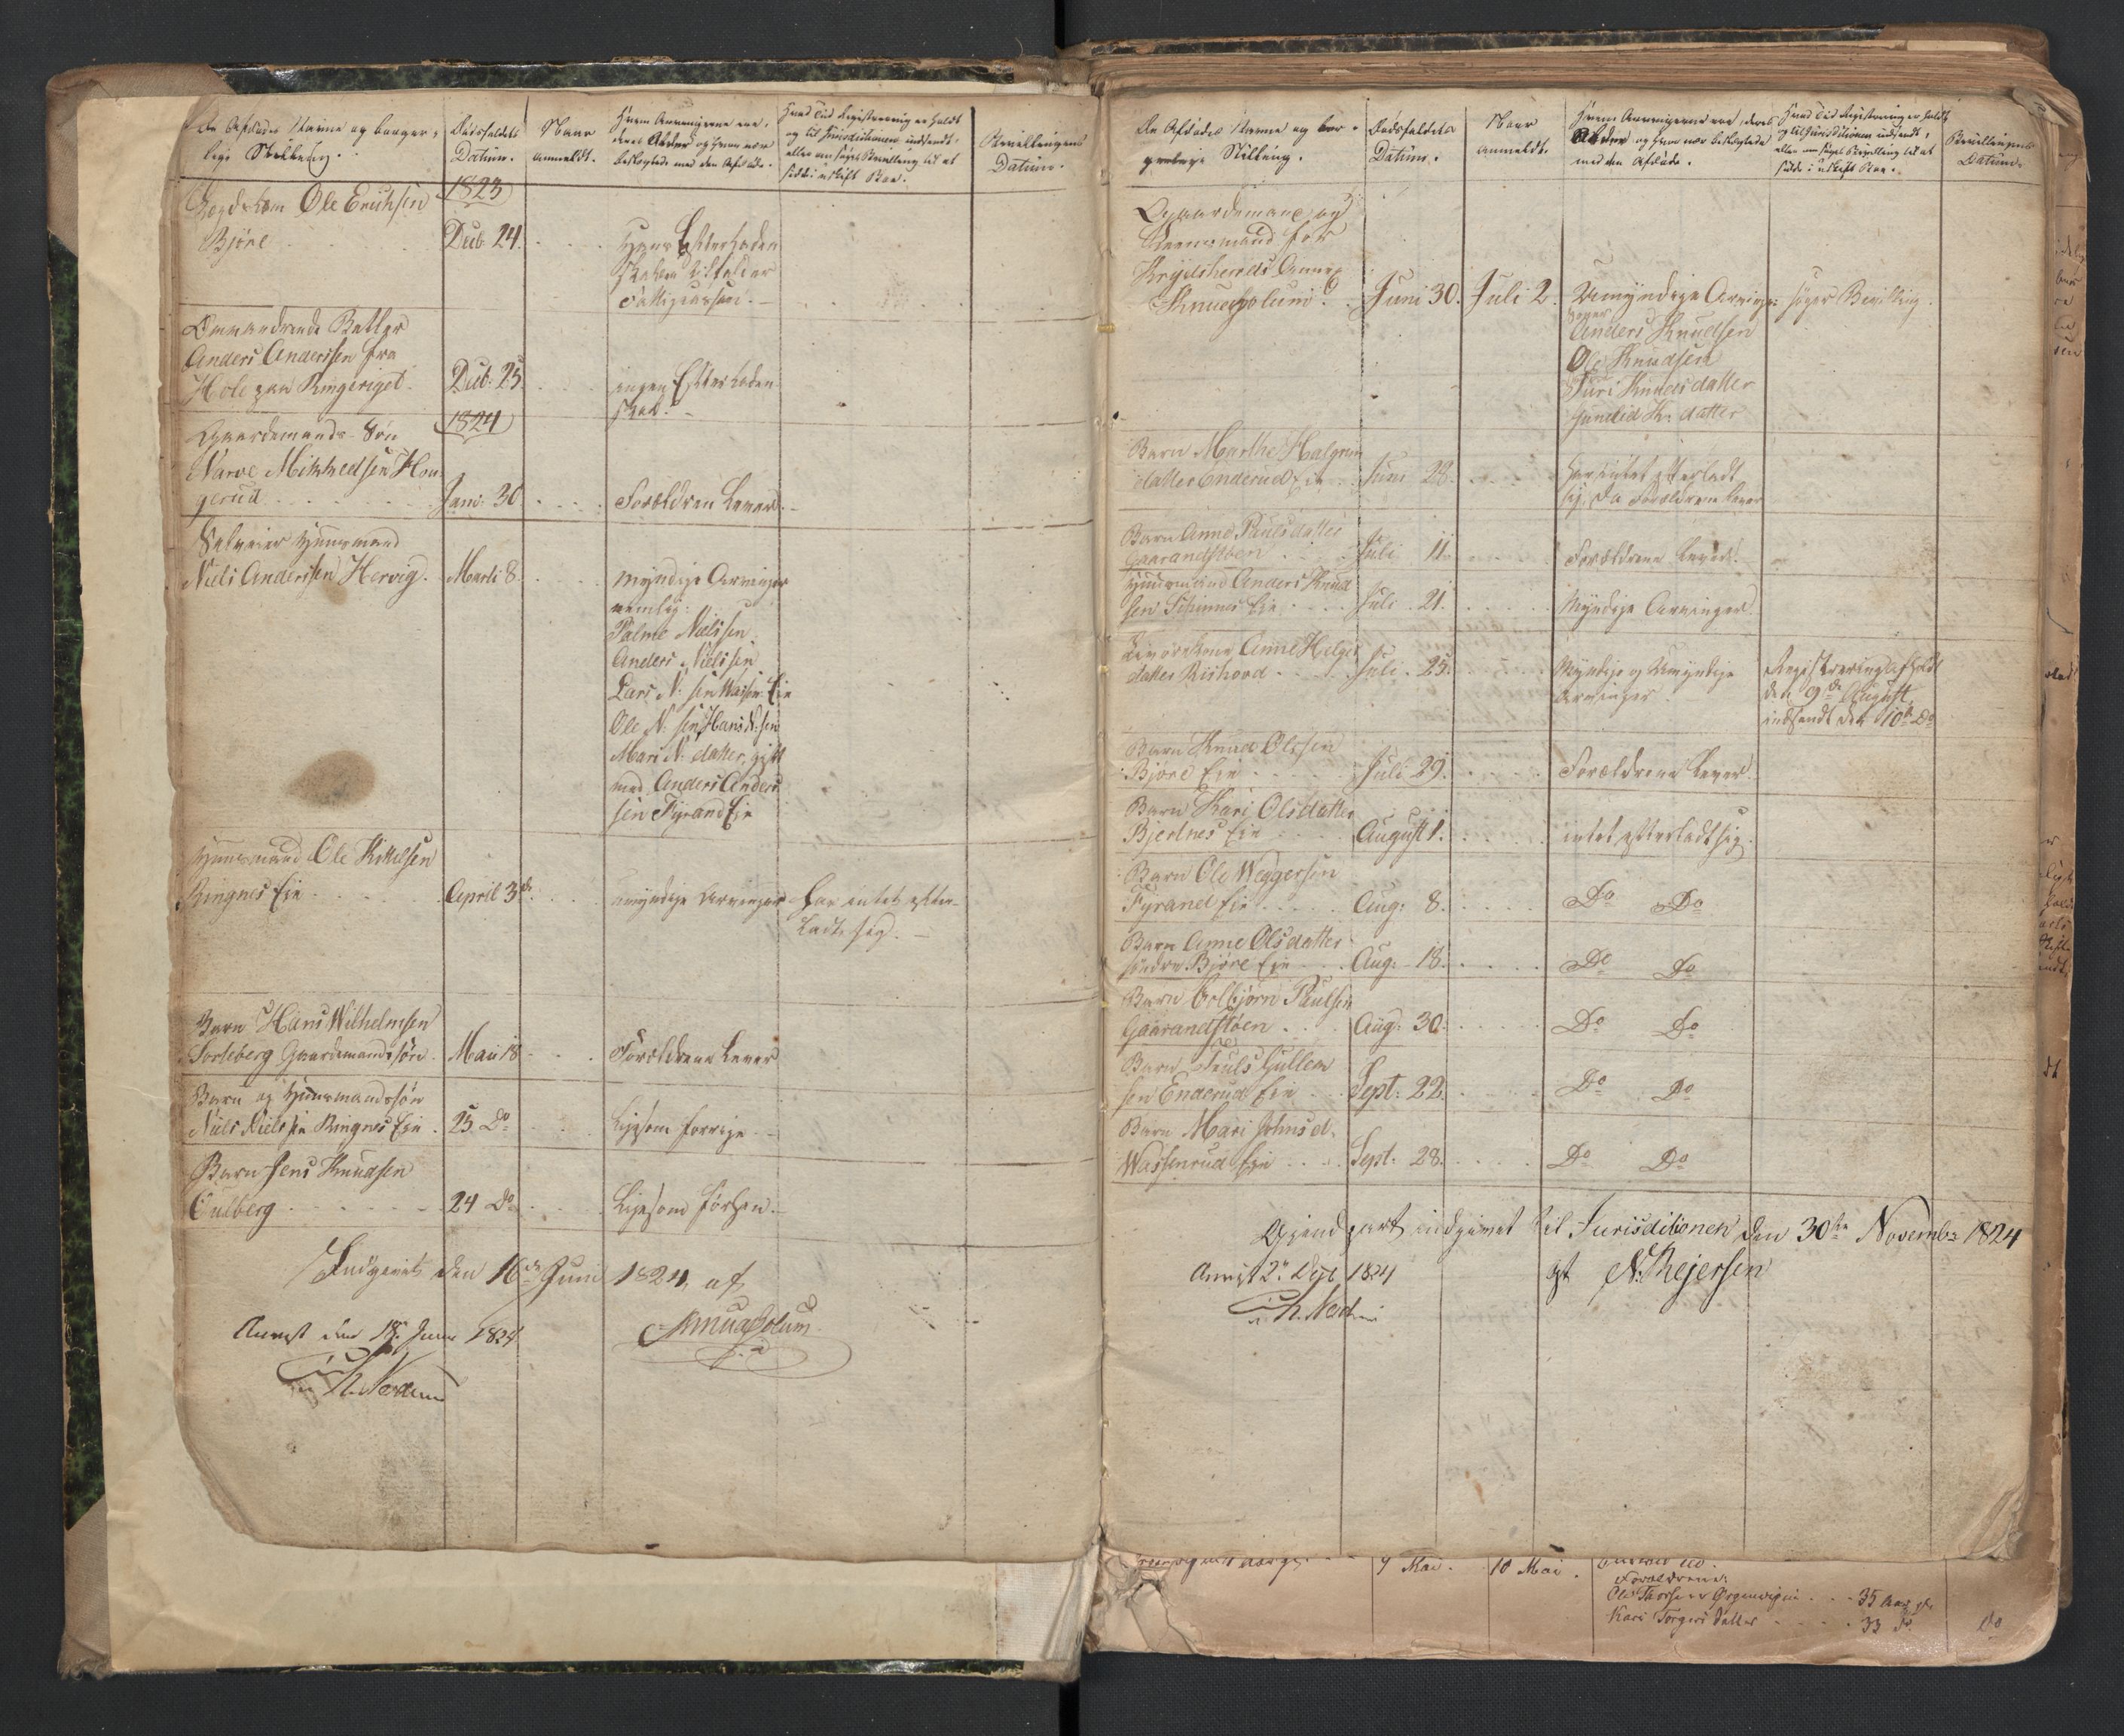 De Afdødes Navne og borger-
lige Stilling.
Dødsfaldets
Datum.
Naar
anmeldt.
Hvem Arvingerne ere,
deres Alder og hvor nær
beslægtede med den Afdøde.
Hvad Tid Registrering er holdt
og til Jurisdictionen indsendt,
eller om søges Bevilling til at
sidde i uskift Boe.
Bevillingens
Datum.
1823
Ole Erichsen
Bjøre
Decb. 24.
Hans Efterladen
skaber tilfalder
Fattigcassen.
Omvandrende Betler
Anders Anderssen fra
Hole paa Ringeriget.
Decb: 25.
ingen Efterladen
skab.
1824
Gaardemands Søn
Narve Mikkelsen Hou
gerud
Jan: 30
Forældren Lever.
Huusmand
Niels Anderssen Hervig.
Marti 8.
myndige Arvinger
nemlig:
Palme Nielssen
Anders Nielssen
Lars N: sen Wassen: Eie
Ole N: sen, Hans N: sen
Mari N: datter, gift
med Anders Anders
sen Fyrand Eie
Huusmand Ole Kittilsen
Ringnes Eie
April 3de
umyndige Arvinger
har intet efter-
Ladt sig.
Barn Hans Wilhelmsen
Sorteberg Gaardmandssøn
Mai 18
Forældrene Lever
Barn og Huusmandssøn
Niels Nielssen Ringnes Eie
23 Do
Ligesom forrige
Barn Jens Knudsen
Gulberg
24 Do
Ligesom førhen.
Indgivet den 16de Juni 1824 af
Knud Solum
Anvist den 18. Juni 1824
De Afdødes Navne og bor-
gerlige Stilling.
Dødsfaldets
Datum.
Naar
anmeldt.
Hvem Arvingerne ere, deres
Alder og hvor nær beslægtede
med den Afdøde.
Hvad Tid Registrering er holdt
og til Jurisdictionen indsendt,
eller om søges Bevilling til at
sidde i uskift Boe.
Bevillingens
Datum.
Gaardemand og
Leensmand for
Krydsherreds Annex
Knud Solum
Juni 30.
Juli 2.
Umyndige Arvinger
søger Bevilling.
Anders Knudsen
Ole Knudsen
Turi Knudsdatter
Gunild K: datter
Barn Marthe Halgrim
datter Enderud Eie
Juni 28.
har intet efterladt
sig, da Forældrene lever
Barn Anne Paulsdatter
Gaarandstøen
Juli 11.
Forældrene Lever.
Huusmand Anders Knud
sen Skinnes Eie
Juli 21.
Myndige Arvinger.
Anne Helges
datter Rishovd
Juli 25.
Myndige og Umyndige
Arvinger
Registrering afholdt
den 9de August
indsendt den 10de Do
Barn Knud Olssen
Bjøre Eie
Juli 29.
Forældrene Lever.
Barn Kari Olsdatter
Bjertnes Eie
August 1.
intet efterladt sig.
Barn Ole Weggersen
Fyrand Eie
Aug: 8.
Do Do
Barn Anne Olsdatter
søndre Bjøre Eie
Aug: 18.
Do Do
Barn Colbjørn Paulsen
Gaarandstøen
Aug: 30.
Do Do
Barn Truls Gullem
sen Enderud Eie
Sept: 22.
Do Do
Barn Mari Johnsd.
Wassenrud Eie
Sept: 28.
Do Do
Gjendpart indgivet til Jurisdictionen den 30te Novembr 1824
N. Rejersen
Anvist 2n Decbr 1824
9 Mai.
10 Mai.
Forældrene:
35 Aar
Kari Torgersdatter
33 do
do